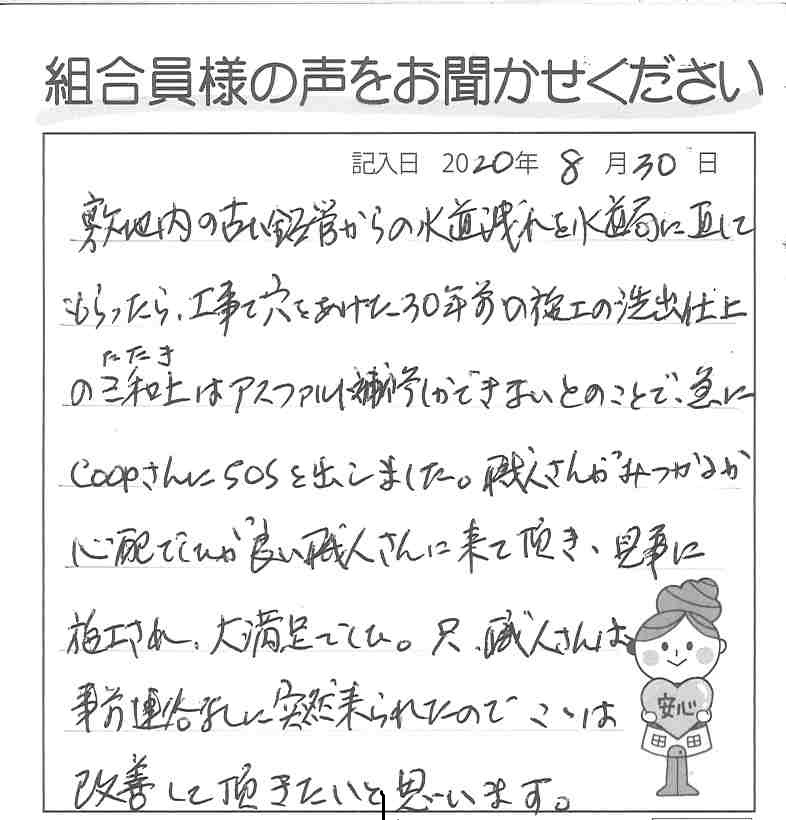 組合員様の声をお聞かせください
記入日 2020年 8月30日
敷地内の古い鉛管からの水道洩れを水道局に直して
もらったら、工事で穴をあけた30年前の施工の洗出仕上
たたき
の三和土はアスファルト補修しかできまいとのことで、急に
COOPさんにSOSを出しました。職人さんがみつかるか
心配でしたが良い職人さんに来て頂き、見事に
施工され、大満足でした。只、職人さんは
事前連絡なしに突然来られたのでここは
改善して頂きたいと思います。
安心